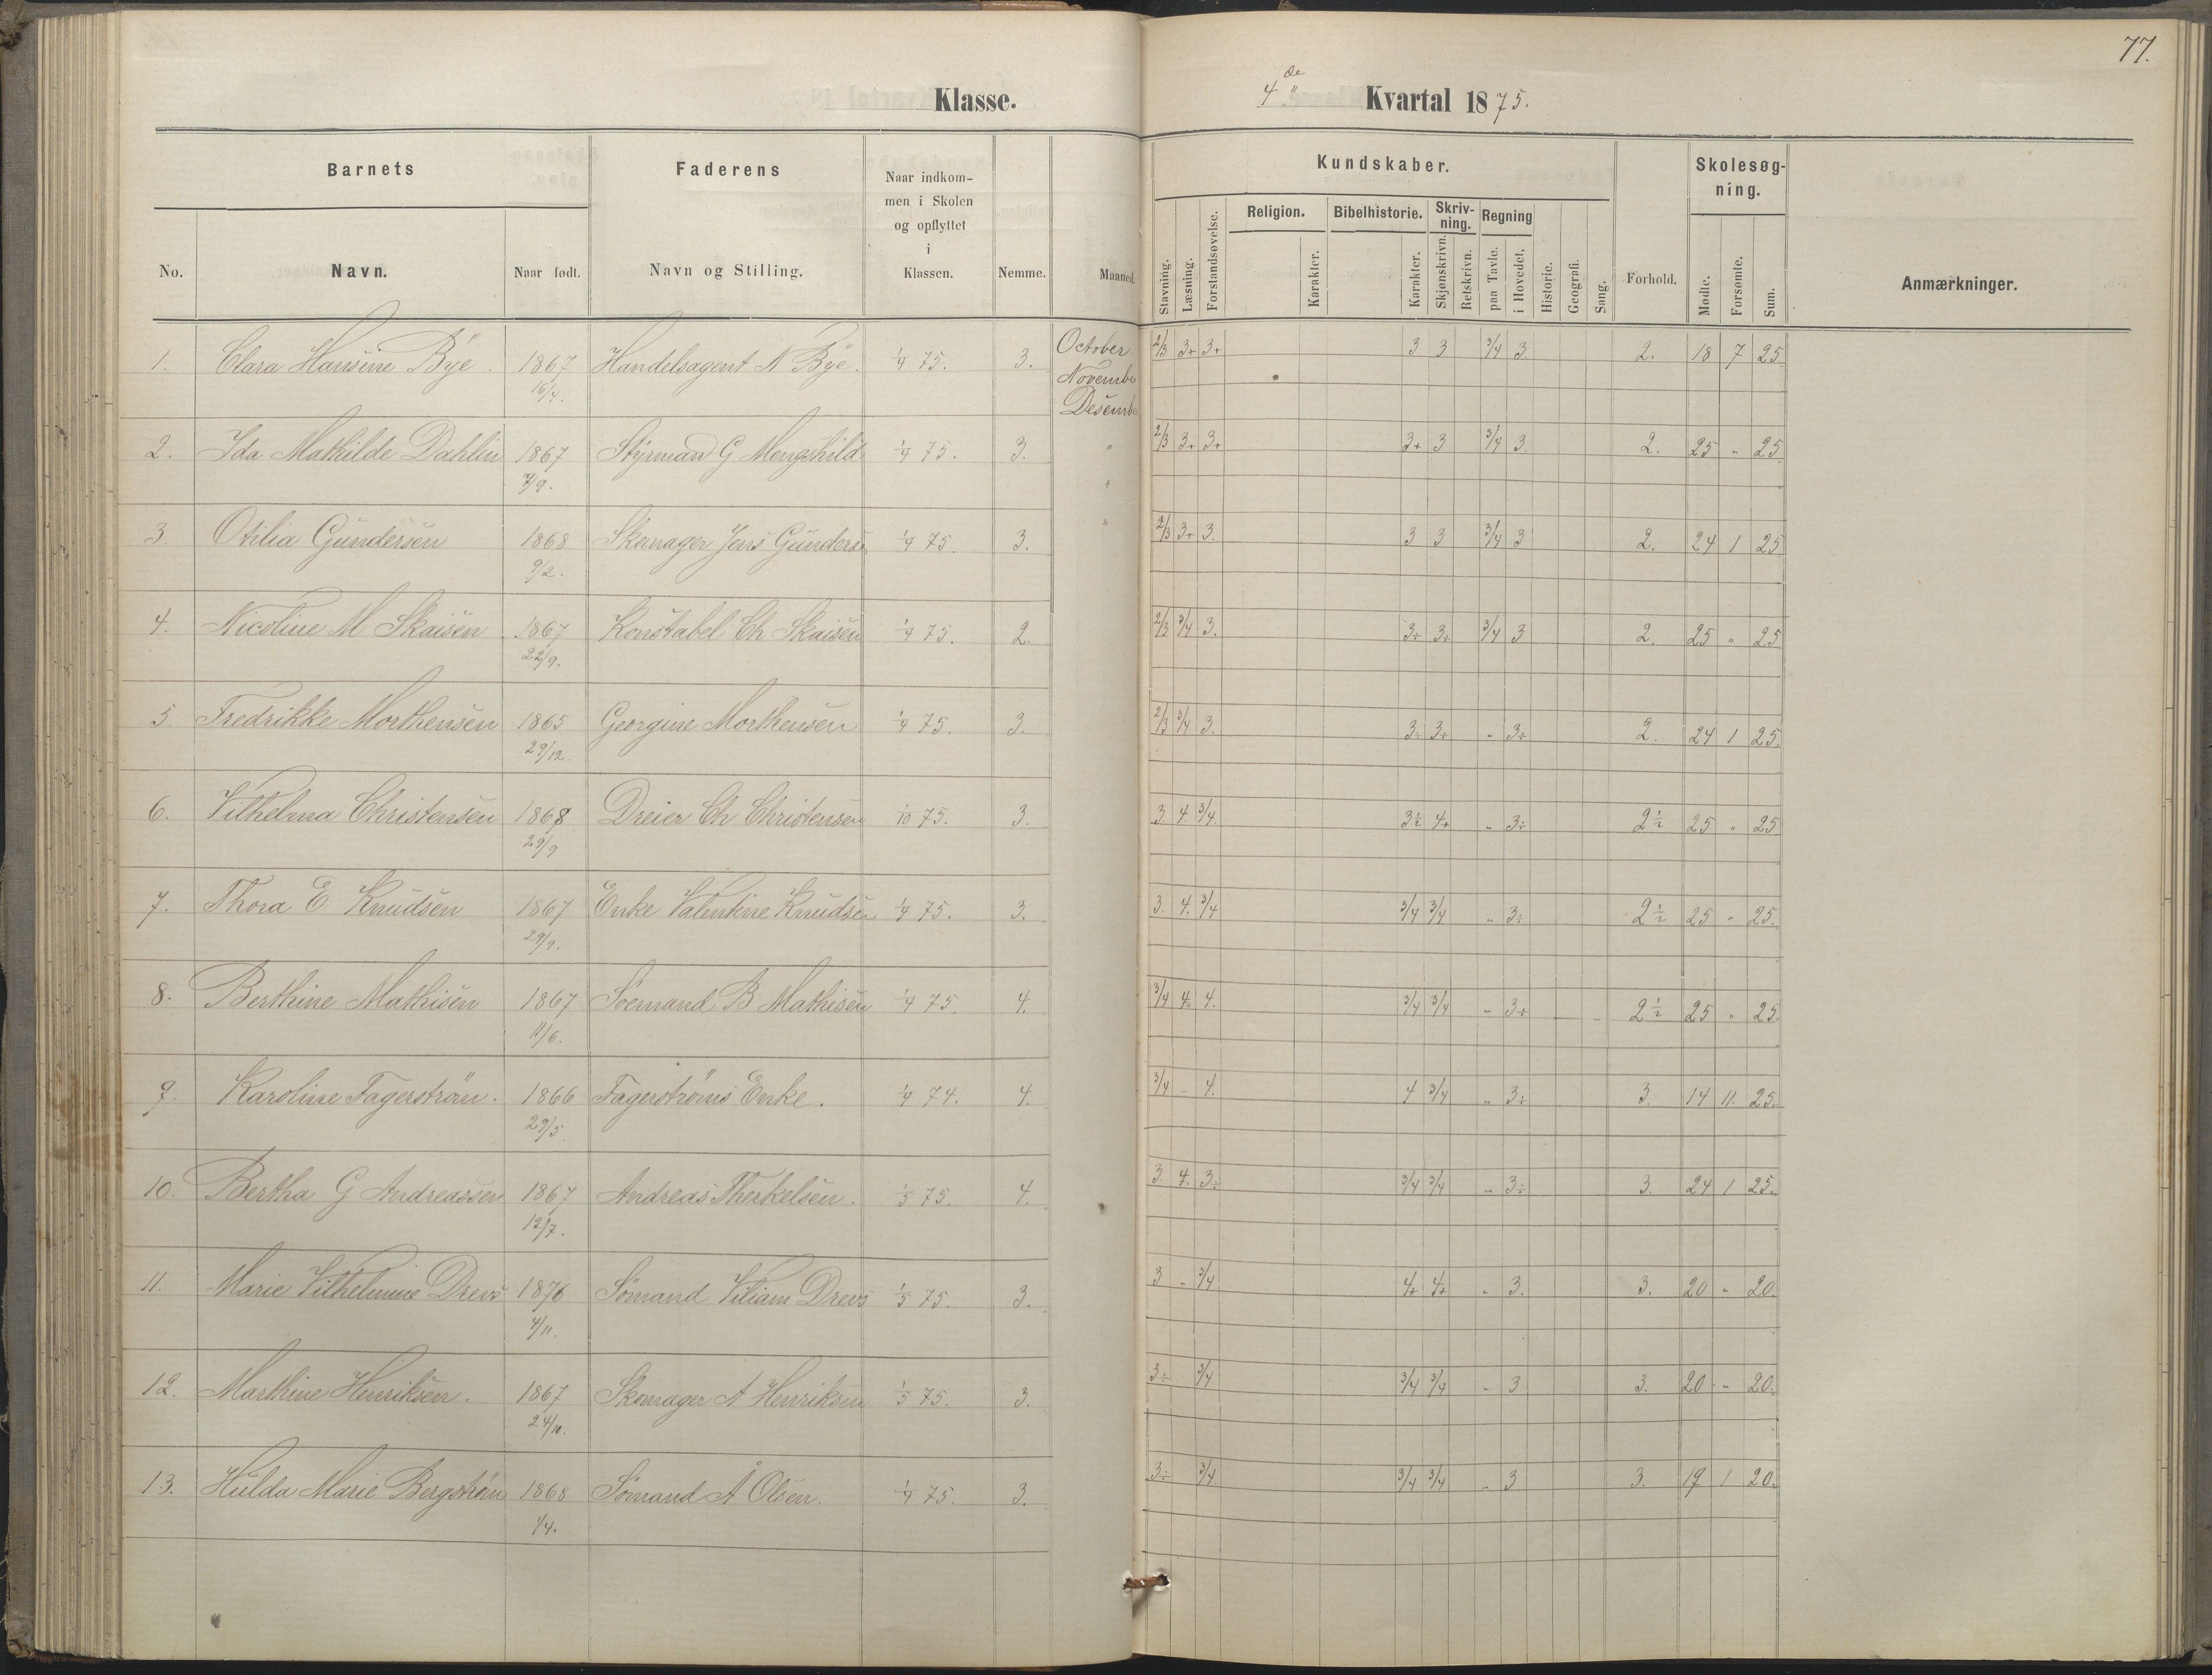 77.
Klasse.
4de " Kvartal 1875.
Barnets
Faderens
Naar indkom-
men i Skolen
og opflyttet
i
Klassen.
Kundskaber.
Skolesøg-
ning.
Religion. Bibelhistorie. Skriv-
ning. Regning
No. Navn. Naar født. Navn og Stilling. Nemme. Maaned. Stavning. Læsning. Forstandsøvelse. Karakter. Karakter. Skjønskrivn. Retskrivn. paa Tavle. i Hovedet. Historie. Geografi. Sang. Forhold. Mødte. Forsømte. Sum. Anmærkninger.
1. Clara Hansine Bÿe. 1867 Handelsagent N Bÿe. 1/9 75. 3. October. 2/3 3+ 3+ 3 3 3/4 3. 2. 18 7 25
16/4. November
Desember
2. Ida Mathilde Dahlin 1867 Stÿrmand G Mengshild 1/9 75. 3. " 2/3 3+ 3+ 3+ 3 3/4 3. 2. 25 " 25
7/9. "
3. Otilia Gundersen 1868 Skomager Jens Gundersen 1/9 75. 3. " 2/3 3+ 3. 3 3 3/4 3 2. 24 1 25
9/2.
4. Nicoline M Skaisen 1867 Konstabel Ch Skaisen 1/9 75. 2. 2/3 3/4 3. 3÷ 3÷ 3/4 3 2. 25 " 25
22/9.
5. Fredrikke Morthensen 1865 Georgine Morthensen 1/9 75. 3. 2/3 3/4 3. 3÷ 3+ " 3+ 2. 24 1 25.
29/12
6. Vilhelma Christensen 1868 Dreier Ch Christensen 1/10 75. 3. 3. 4 3/4 3½ 4+ " 3÷ 2½ 25 " 25
29/9
7. Thora E Knudsen 1867 Enke Valentine Knudsen 1/9 75. 3. 3. 4. 3/4 3/4 3/4 " 3÷ 2½ 25 " 25.
29/9.
8. Berthine Mathisen 1867 Söemand B Mathisen 1/9 75. 4. 3/4 4. 4. 3/4 3/4 " 3+ 2½ 25 " 25.
11/6.
9. Karoline Fagerströn. 1866 Fagerströms Enke. 1/9 74. 4. 3/4 - 4. 4 3/4 " 3÷ 3. 14 11. 25.
29/5.
10. Bertha G Andreassen 1867 Andreas Therkelsen. 1/5 75. 4. 3. 4. 3÷ 3/4 3/4 " 3÷ 3. 24 1 25.
12/7.
11. Marie Vilhelmine Drevs 1876 Sömand Viliam Drevs 1/5 75. 3. 3 - 3/4 4+ 4+ " 3. 3. 20 " 20.
4/11.
12. Marthine Henriksen. 1867 Skomager A Henriksen 1/5 75. 3. 3÷ 3/4 3/4 3/4 " 3 3. 20 " 20.
24/10.
13. Hulda Marie Bergströn 1868 Sömand A Olsen. 1/9 75. 3. 3÷ 3/4 3/4 3/4 " 3 3. 19 1 20.
1/4.